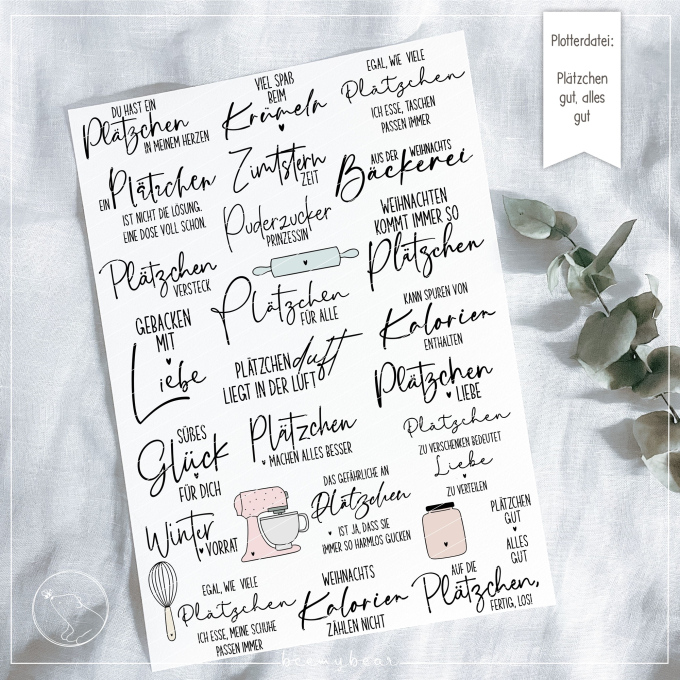 Plotterdatei:
Plätzchen
gut, alles
gut
DU HAST EIN
Plätzchen
IN MEINEM HERZEN
VIEL SPAß
BEIM
Krümeln
EGAL, WIE VIELE
Plätzchen
ICH ESSE, TASCHEN
PASSEN IMMER
EIN Plätzchen
IST NICHT DIE LÖSUNG.
EINE DOSE VOLL SCHON.
Zimtstern
ZEIT
AUS DER WEIHNACHTS
Bäckerei
Puderzucker
PRINZESSIN
WEIHNACHTEN
KOMMT IMMER SO
Plätzchen
Plätzchen
VERSTECK
Plätzchen
FÜR ALLE
KANN SPUREN VON
Kalorien
ENTHALTEN
GEBACKEN
MIT
Liebe
PLÄTZCHEN duft
LIEGT IN DER LUFT
Plätzchen
LIEBE
SÜßES
Glück
FÜR DICH
Plätzchen
MACHEN ALLES BESSER
Plätzchen
ZU VERSCHENKEN BEDEUTET
Liebe
ZU VERTEILEN
Winter
VORRAT
DAS GEFÄHRLICHE AN
Plätzchen
IST JA, DASS SIE
IMMER SO HARMLOS GUCKEN
PLÄTZCHEN
GUT
ALLES
GUT
EGAL, WIE VIELE
Plätzchen
ICH ESSE, MEINE SCHUHE
PASSEN IMMER
WEIHNACHTS
Kalorien
ZÄHLEN NICHT
AUF DIE
Plätzchen,
FERTIG, LOS!
beemybear